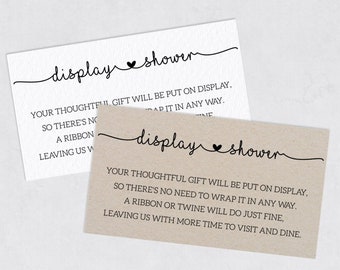 display shower
YOUR THOUGHTFUL GIFT WILL BE PUT ON DISPLAY,
SO THERE'S NO NEED TO WRAP IT IN ANY WAY.
A RIBBON
LEAVING US W
display shower
YOUR THOUGHTFUL GIFT WILL BE PUT ON DISPLAY,
SO THERE'S NO NEED TO WRAP IT IN ANY WAY.
A RIBBON OR TWINE WILL DO JUST FINE,
LEAVING US WITH MORE TIME TO VISIT AND DINE.